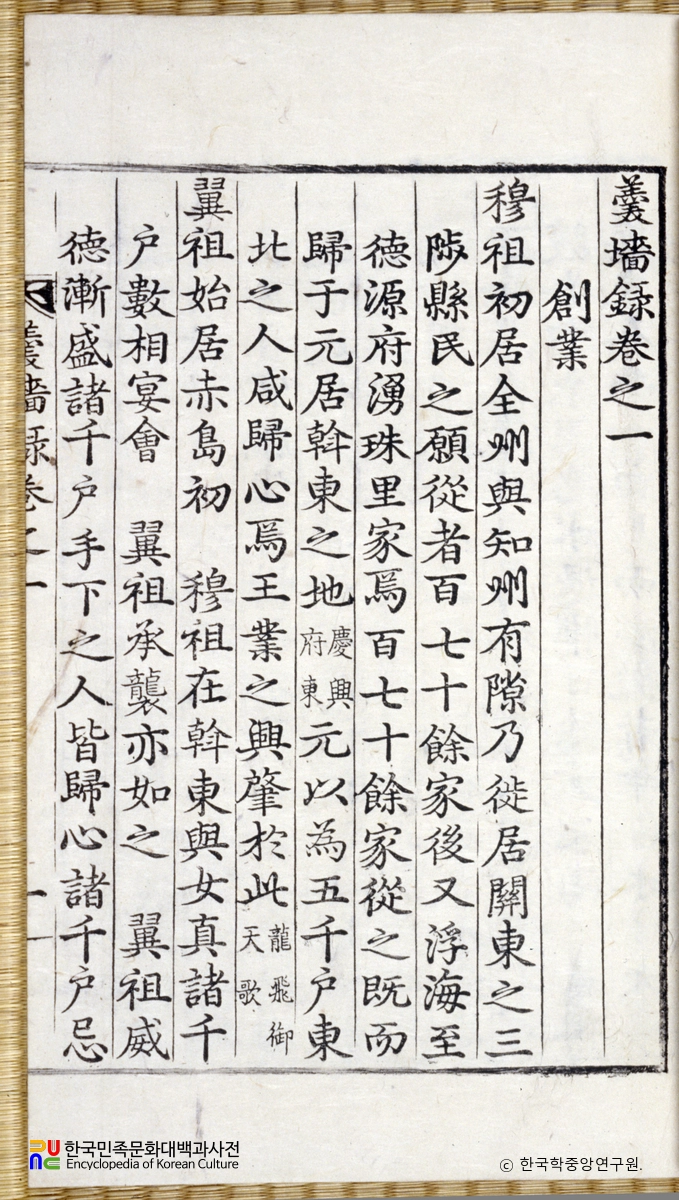 羹墻録卷之一
創業
穆祖初居全州與知州有隙乃徙居關東之三
陟縣民之願從者百七十餘家後又浮海至
德源府湧珠里家焉百七十餘家從之既而
歸于元居斡東之地慶興府東元以為五千户東
北之人咸歸心焉王業之興肇於此龍飛御天歌
翼祖始居赤島初 穆祖在斡東與女真諸千
户數相宴會 翼祖承襲亦如之 翼祖威
德漸盛諸千户手下之人皆歸心諸千户忌
羹墻録卷之一
一
한국민족문화대백과사전
Encyclopedia of Korean Culture
© 한국학중앙연구원.